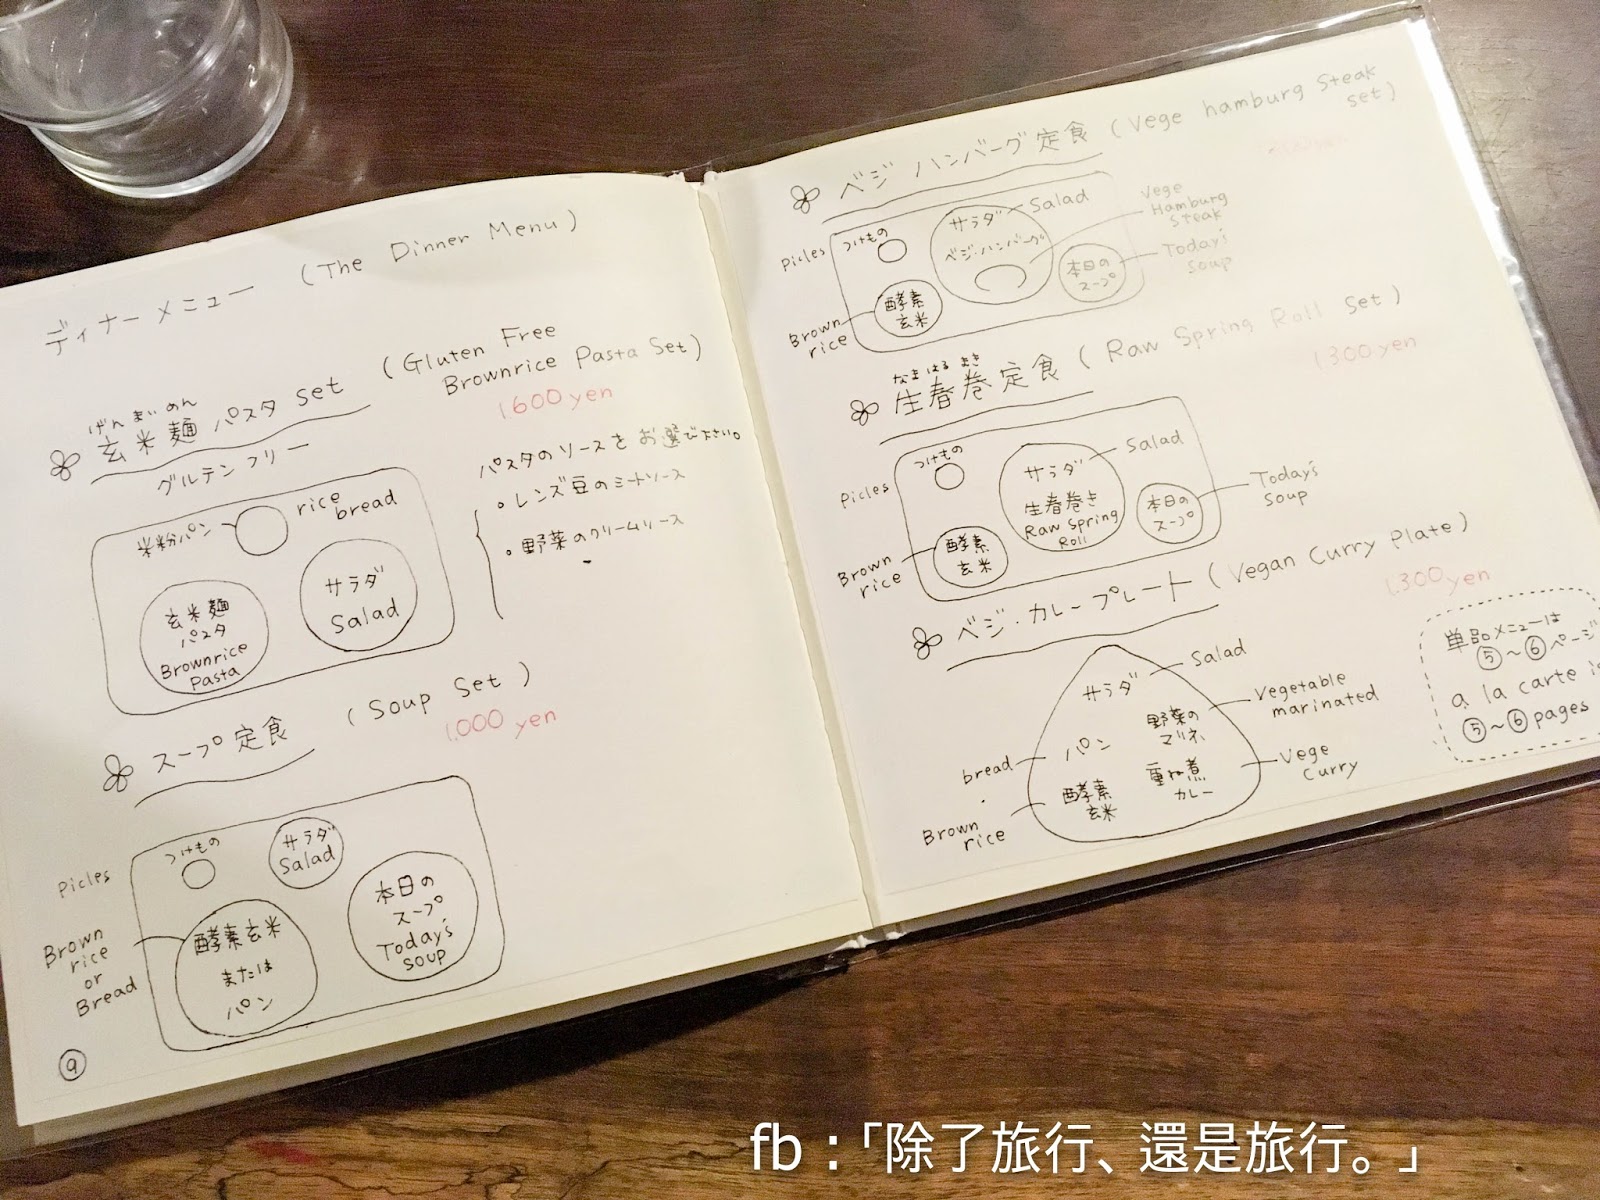 ディナーメニュー (The Dinner Menu)
げんまいめん
玄米麺パスタ set (Gluten Free
Brownrice Pasta Set)
1,600 yen
グルテンフリー
米粉パン
rice
bread
玄米麺
パスタ
Brownrice
pasta
サラダ
Salad
パスタのソースをお選び下さい。
レンズ豆のミートソース
野菜のクリームソース
スープ定食 (Soup Set)
1,000 yen
Picles
つけもの
サラダ
Salad
Brown
rice
or
Bread
酵素玄米
または
パン
本日の
スープ
Today's
soup
⑨
ベジ・ハンバーグ定食 (Vege hamburg steak
set)
Picles
つけもの
サラダ
Salad
ベジ・ハンバーグ
Vege
Hamburg
steak
Brown
rice
酵素
玄米
本日の
スープ
Today's
soup
なまはるまき
生春巻定食 (Raw Spring Roll Set)
1,300 yen
Picles
つけもの
サラダ
Salad
生春巻き
Raw spring
Roll
Brown
rice
酵素
玄米
本日の
スープ
Today's
soup
ベジ・カレープレート (Vegan Curry Plate)
1,300 yen
サラダ
Salad
野菜の
マリネ
Vegetable
marinated
bread
パン
Brown
rice
酵素
玄米
重ね煮
カレー
Vege
curry
単品メニューは
⑤~⑥ページ
a la carte is
⑤~⑥ pages
fb：「除了旅行、還是旅行。」